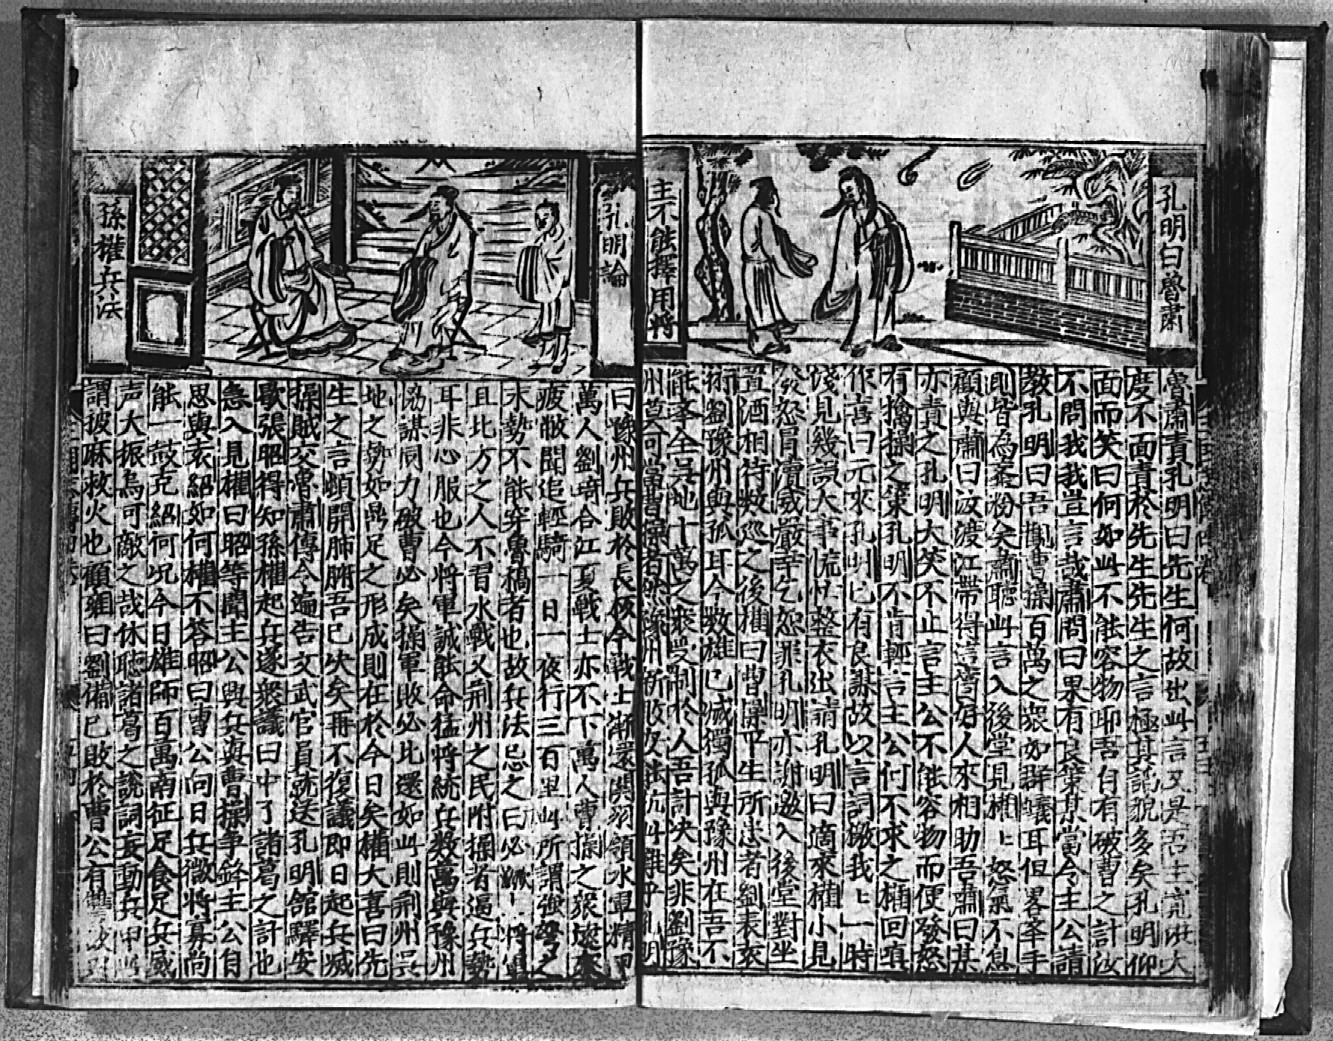 孔明曰魯肅
主不能擇用將
魯肅責孔明曰先生何故出此言又是吾主寬洪大
度不面責於先生先生之言極其藐多矣孔明仰
面而笑曰何如此不能容物耶吾自有破曹之計汝
不問我我豈言哉肅問曰果有良策某當令主公請
教孔明曰吾觀曹操百萬之眾如群蟻耳但畧舉手
則皆為虀粉矣肅聽此言入後堂見權權怒氣不息
顧與肅曰汝渡江帶得這等好人來相助吾肅曰某
亦責之孔明大笑不止言主公不能容物而便發怒
有擒操之策孔明不肯輕言主公何不求之權回嗔
作喜曰元來孔明已有良謀故以言詞激我我一時
淺見幾誤大事慌忙整衣出請孔明曰適來權小見
發怒冐瀆威嚴幸乞恕罪孔明亦謝邀入後堂對坐
置酒相待數巡之後權曰曹操平生所惡者劉表袁
術劉豫州與孤耳今數雄已滅獨孤與豫州在吾不
能舉全吳地十萬之眾受制於人吾計決矣非劉豫
州莫可當曹操者然豫州新敗安出抗此難乎孔明
孔明論
孫權兵法
曰豫州兵敗於長坂今戰士漸還関羽領水軍精甲
萬人劉琦合江夏戰士亦不下萬人曹操之眾遠來
疲敝聞追輕騎一日一夜行三百里此所謂強弩之
末勢不能穿魯縞者也故兵法忌之曰必蹶上將軍
且北方之人不習水戰又荊州之民附操者逼兵勢
耳非心服也今將軍誠能命猛將統兵數萬與豫州
協謀同力破曹必矣操軍敗必北還如此則荊州吳
地之勢如鼎足之形成則在於今日矣權大喜曰先
生之言頓開肺腑吾已决矣再不復議即日起兵滅
操賊交魯肅傳令遍告文武官員就送孔明館驛安
歇張昭得知孫權起兵遂衆議曰中了諸葛之計也
急入見權曰昭等聞主公興兵與曹操爭鋒主公自
思與袁紹如何權不答昭曰曹公向日兵微將寡尚
能一鼓克紹何况今日雄師百萬南征足食足兵威
声大振焉可敵之哉休聽諸葛之說詞妄動兵甲此
謂披麻救火也顧雍曰劉備已敗於曹公有讐